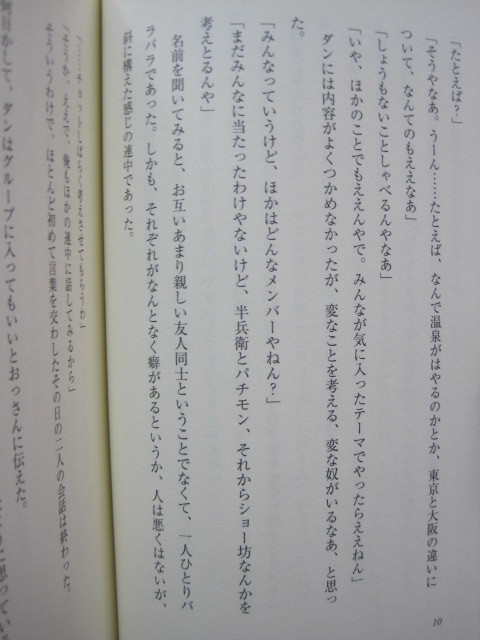 「たとえば？」
「そうやなあ。うーん……たとえば、なんで温泉がはやるのかとか、東京と大阪の違いに
ついて、なんてのもええなあ」
「しょうもないことしゃべるんやなあ」
「いや、ほかのことでもええんやで。みんなが気に入ったテーマでやったらええねん」
ダンには内容がよくつかめなかったが、変なことを考える、変な奴がいるなあ、と思っ
た。
「みんなっていうけど、ほかはどんなメンバーやねん？」
「まだみんなに当たったわけやないけど、半兵衛とパチモン、それからショー坊なんかを
考えとるんや」
名前を聞いてみると、お互いあまり親しい友人同士ということでなくて、一人ひとりバ
ラバラであった。しかも、それぞれがなんとなく癖があるというか、人は悪くはないが、
斜に構えた感じの連中であった。
10
「……チョットしばらく考えさせてもらうわ」
「そうか、ええで、俺もほかの連中に話してみるから」
そういうわけで、ほとんど初めて言葉を交わしたその日の二人の会話は終わった。
何日かして、ダンはグループに入ってもいいとおっさんに伝えた。